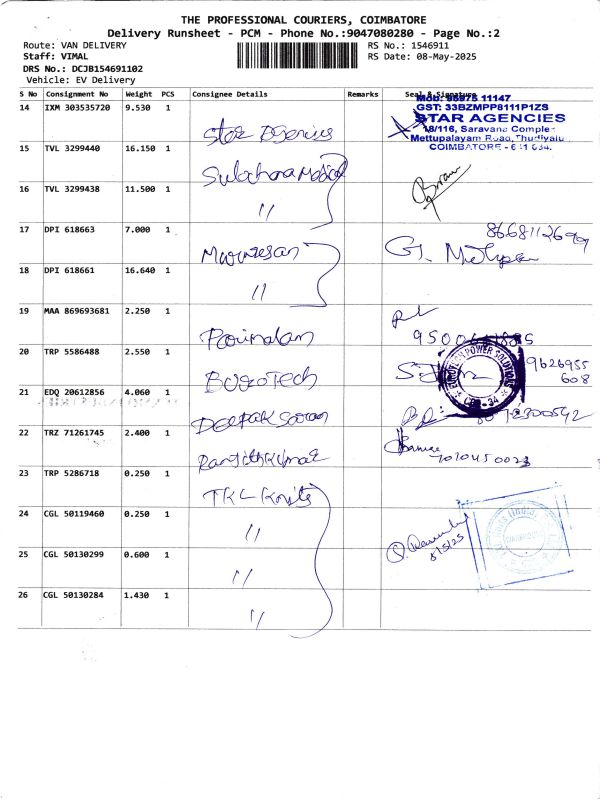 THE PROFESSIONAL COURIERS, COIMBATORE
Delivery Runsheet - PCM - Phone No.:9047080280 - Page No.:2
Route: VAN DELIVERY
RS No.: 1546911
Staff: VIMAL
RS Date: 08-May-2025
DRS No.: DCJB154691102
Vehicle: EV Delivery
S No Consignment No Weight PCS Consignee Details Remarks Seal & Signature
Mob: 95975 11147
GST: 33BZMPP8111P1ZS
STAR AGENCIES
18/116, Saravana Comple
Mettupalayam Road, Thudiyalu
COIMBATORE - 641 034.
14 IXM 303535720 9.530 1
Star Agencies
15 TVL 3299440 16.150 1
Sulochana Medical
16 TVL 3299438 11.500 1
"
17 DPI 618663 7.000 1
Murugesan
18 DPI 618661 16.640 1
"
19 MAA 869693681 2.250 1
20 TRP 5586488 2.550 1
EuroTech
POWER SOLUTIONS
CBE-34
9626955
608
21 EDQ 20612856 4.060 1
Deepak Saran
22 TRZ 71261745 2.400 1
Ranjithkumar
23 TRP 5286718 0.250 1
TKL Knits
24 CGL 50119460 0.250 1
"
25 CGL 50130299 0.600 1
"
8/5/25
26 CGL 50130284 1.430 1
"